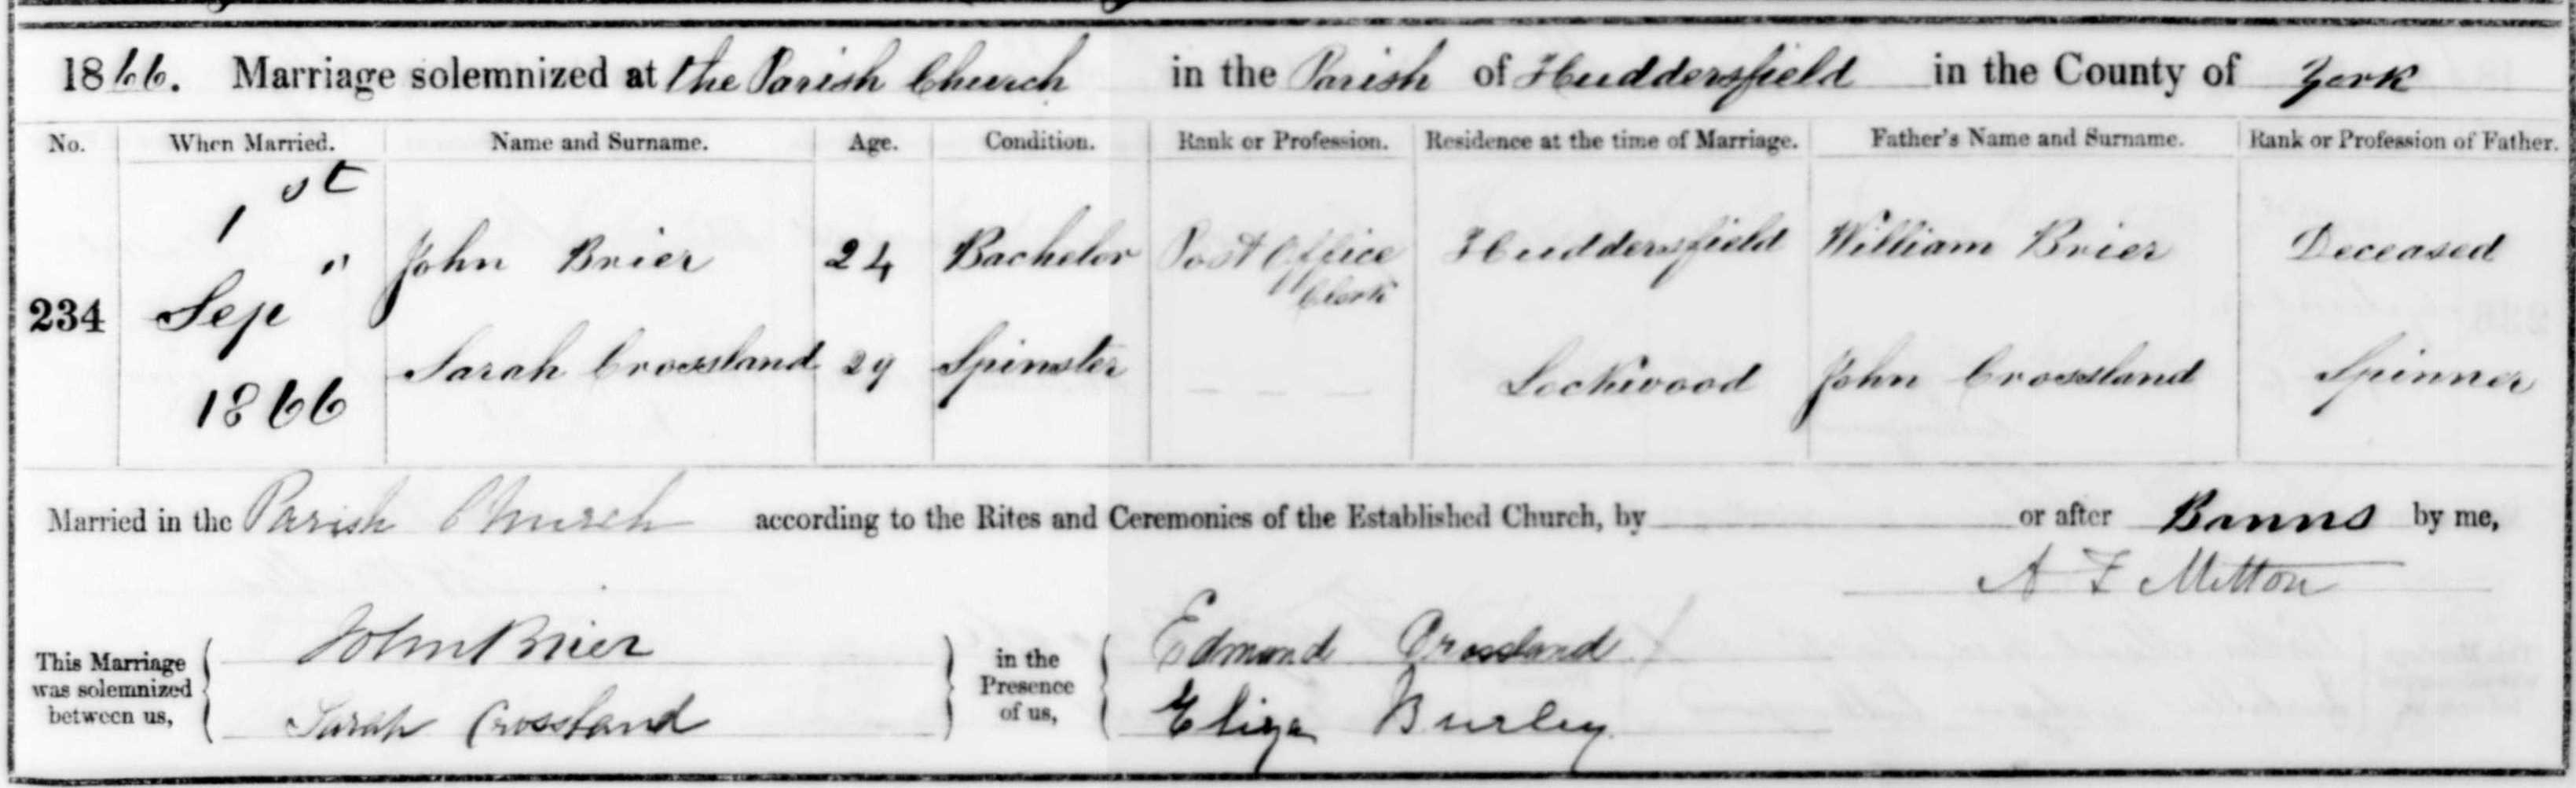 1866. Marriage solemnized at the Parish Church in the Parish of Huddersfield in the County of York
No. When Married. Name and Surname. Age. Condition. Rank or Profession. Residence at the time of Marriage. Father's Name and Surname. Rank or Profession of Father.
234 1st Sep 1866
John Brier 24 Bachelor Post Office Clerk Huddersfield William Brier Deceased
Sarah Crossland 29 Spinster — — — Lockwood John Crossland Spinner
Married in the Parish Church according to the Rites and Ceremonies of the Established Church, by or after Banns by me,
A F Mitton
This Marriage was solemnized between us, John Brier Sarah Crossland in the Presence of us, Edmond Crossland Eliza Burley